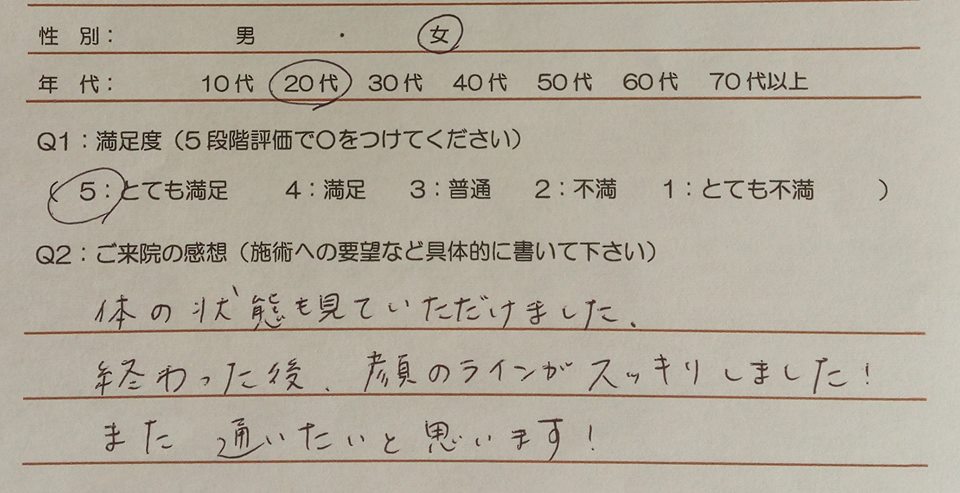 性 別： 男 ・ 女
年 代： 10代 20代 30代 40代 50代 60代 70代以上
Q1：満足度（5段階評価で〇をつけてください）
（ 5：とても満足 4：満足 3：普通 2：不満 1：とても不満 ）
Q2：ご来院の感想（施術への要望など具体的に書いて下さい）
体の状態も見ていただけました。
終わった後、顔のラインがスッキリしました！
また通いたいと思います！